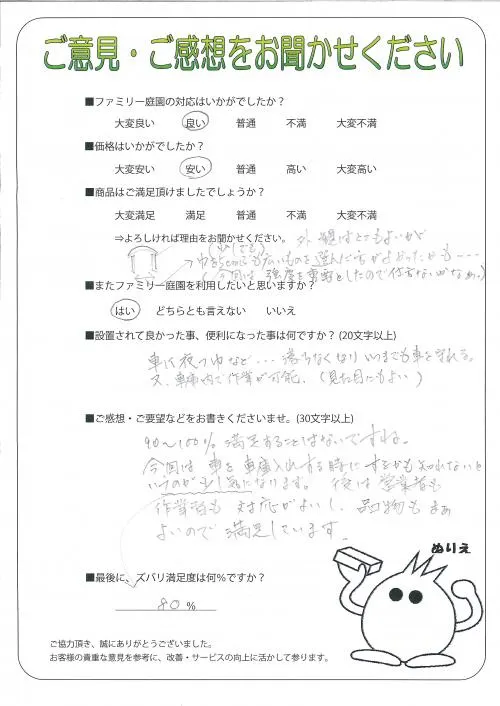 ご意見・ご感想をお聞かせください
■ファミリー庭園の対応はいかがでしたか？
大変良い 良い 普通 不満 大変不満
■価格はいかがでしたか？
大変安い 安い 普通 高い 大変高い
■商品はご満足頂けましたでしょうか？
大変満足 満足 普通 不満 大変不満
⇒よろしければ理由をお聞かせください。 外観はとてもよいが
巾を5cmでも広いものを選んだ方がよかったかも・・・・
(今回は強度を重要としたので仕方ないかなぁ。)
■またファミリー庭園を利用したいと思いますか？
はい どちらとも言えない いいえ
■設置されて良かった事、便利になった事は何ですか？(20文字以上)
車に夜つゆなど・・・落ちなくなりいつまでも車を守れる。
又、車庫内で作業が可能、(見た目にもよい)
■ご感想・ご要望などをお書きくださいませ。(30文字以上)
90～100% 満足することはないですね。
今回は車を車庫入れする時にするかも知れないと
いうのが少し気になります。後は営業者も
作業者も 対応がよいし、品物もまぁ
よいので満足しています。
ぬりえ
■最後に、ズバリ満足度は何％ですか？
80 %
ご協力頂き、誠にありがとうございました。
お客様の貴重な意見を参考に、改善・サービスの向上に活かして参ります。